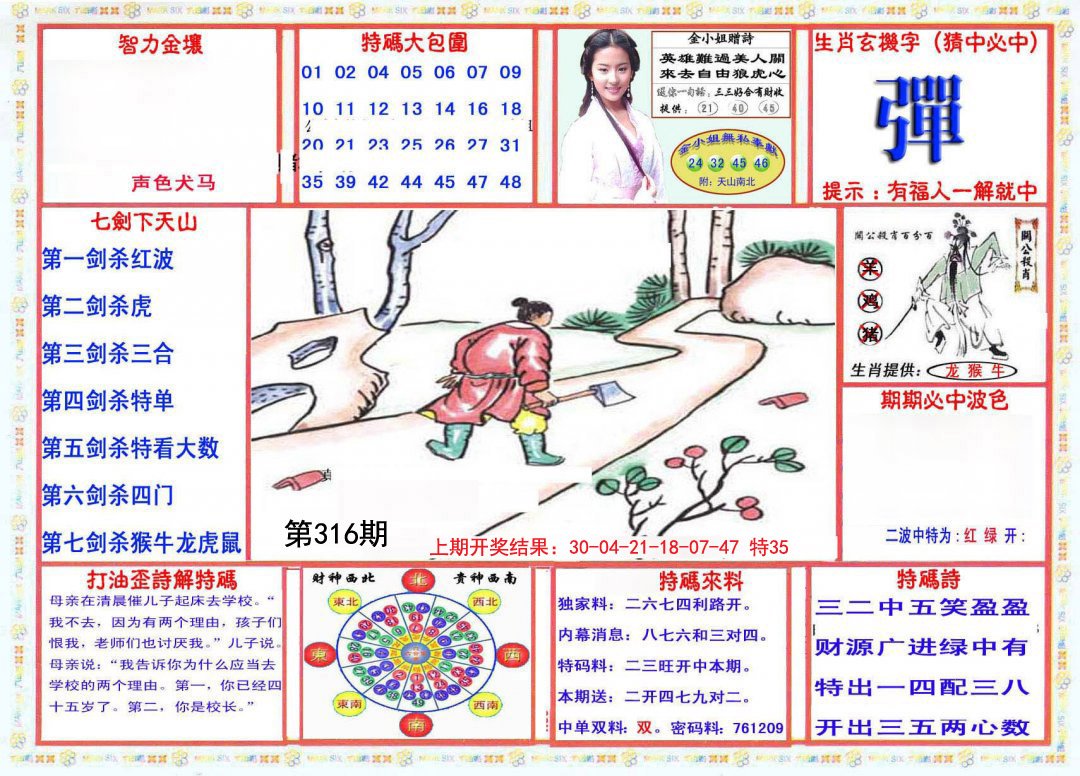 智力金壤
声色犬马
特碼大包圍
01 02 04 05 06 07 09
10 11 12 13 14 16 18
20 21 23 25 26 27 31
35 39 42 44 45 47 48
金小姐赠詩
英雄難過美人關
來去自由狼虎心
送你一句話：三三好合有財收
提供：21 40 45
金小姐無私奉獻
24 32 45 46
附：天山南北
生肖玄機字（猜中必中）
彈
提示：有福人一解就中
七劍下天山
第一剑杀红波
第二剑杀虎
第三剑杀三合
第四剑杀特单
第五剑杀特看大数
第六剑杀四门
第七剑杀猴牛龙虎鼠
第316期
上期开奖结果：30-04-21-18-07-47 特35
關公殺肖百分百
關公殺肖
羊
鸡
猪
生肖提供：龙 猴 牛
期期必中波色
二波中特为：红 绿 开：
打油歪詩解特碼
母亲在清晨催儿子起床去学校。“
我不去，因为有两个理由，孩子们
恨我，老师们也讨厌我。”儿子说。
母亲说：“我告诉你为什么应当去
学校的两个理由。第一，你已经四
十五岁了。第二，你是校长。”
财神西北 貴神西南
北
東北 西北
東 西
東南 西南
南
特碼來料
独家料：二六七四利路开。
内幕消息：八七六和三对四。
特码料：二三旺开中本期。
本期送：二开四七九对二。
中单双料：双。密码料：761209
特碼詩
三二中五笑盈盈
财源广进绿中有
特出一四配三八
开出三五两心数